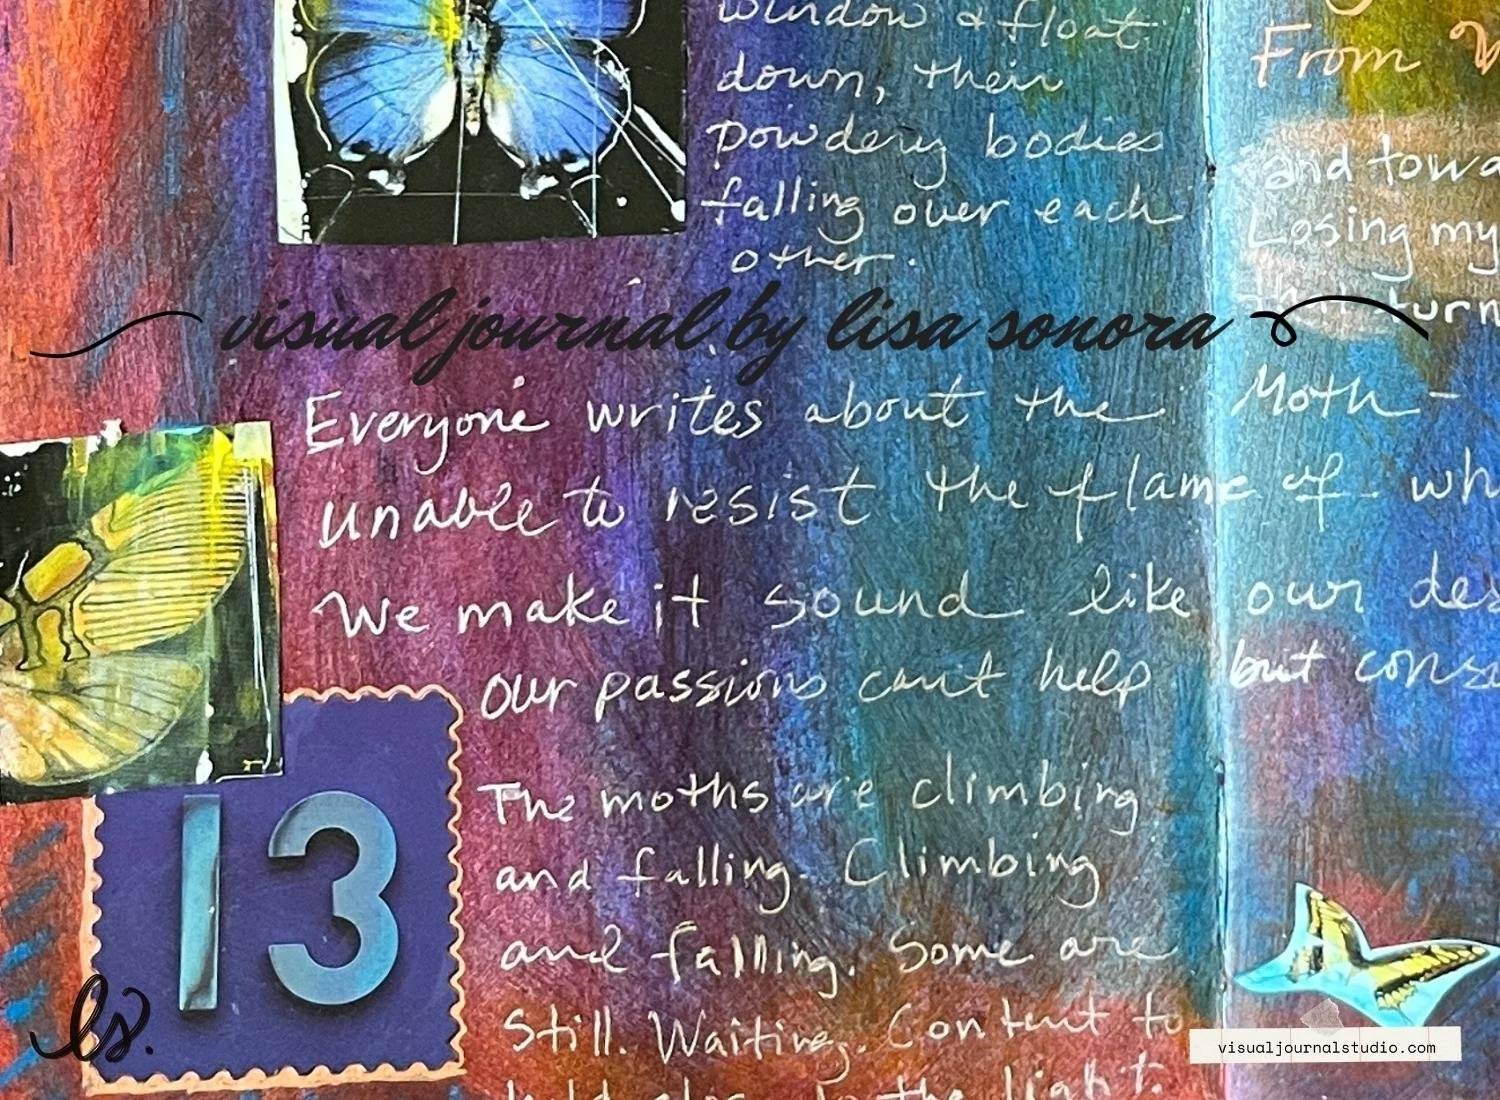 window & float
down, their
powdery bodies
falling over each
other.
From
and towa
Losing my
turn
visual journal by lisa sonora
Everyone writes about the Moth-
unable to resist the flame of wh
We make it sound like our des
our passions can't help but cons
13
The moths are climbing
and falling. Climbing
and falling. Some are
still. Waiting. Content to
the light.
ls.
visualjournalstudio.com